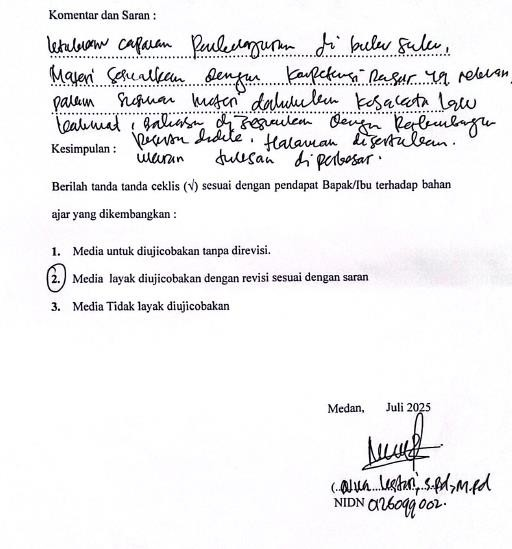 Komentar dan Saran :
letakkan capaian Pembelajaran di buku saku,
Materi sesuaikan dengan Kompetensi Dasar yg relevan,
dalam susunan materi dahulukan kosa kata lalu
kalimat, bahasa di sesuaikan dengan Perkembangan
peserta didik, Halaman disertakan.
Kesimpulan : ukuran tulisan di perbesar.
Berilah tanda tanda ceklis (√) sesuai dengan pendapat Bapak/Ibu terhadap bahan
ajar yang dikembangkan :
1. Media untuk diujicobakan tanpa direvisi.
2. Media layak diujicobakan dengan revisi sesuai dengan saran
3. Media Tidak layak diujicobakan
Medan, Juli 2025
Lestari, S.Pd, M.Pd
NIDN 0126099002.